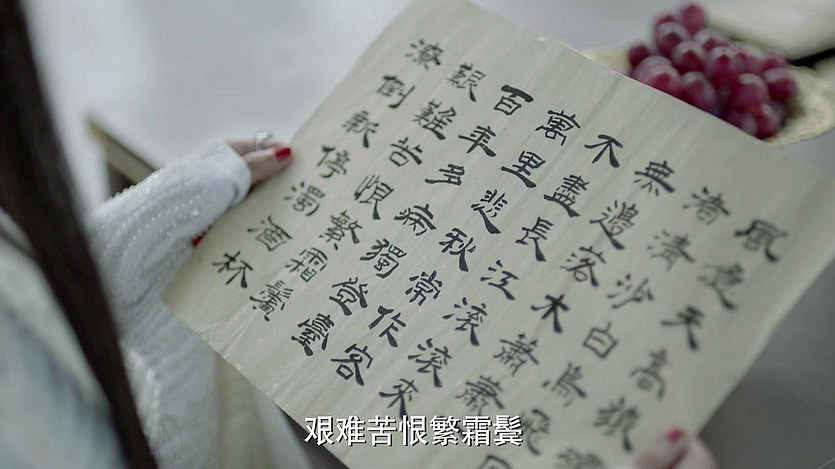 風急天高猿嘯
渚清沙白鳥飛回
無邊落木蕭蕭
不盡長江滾滾來
萬里悲秋常作客
百年多病獨登臺
艱難苦恨繁霜鬢
潦倒新停濁酒杯
艰难苦恨繁霜鬓